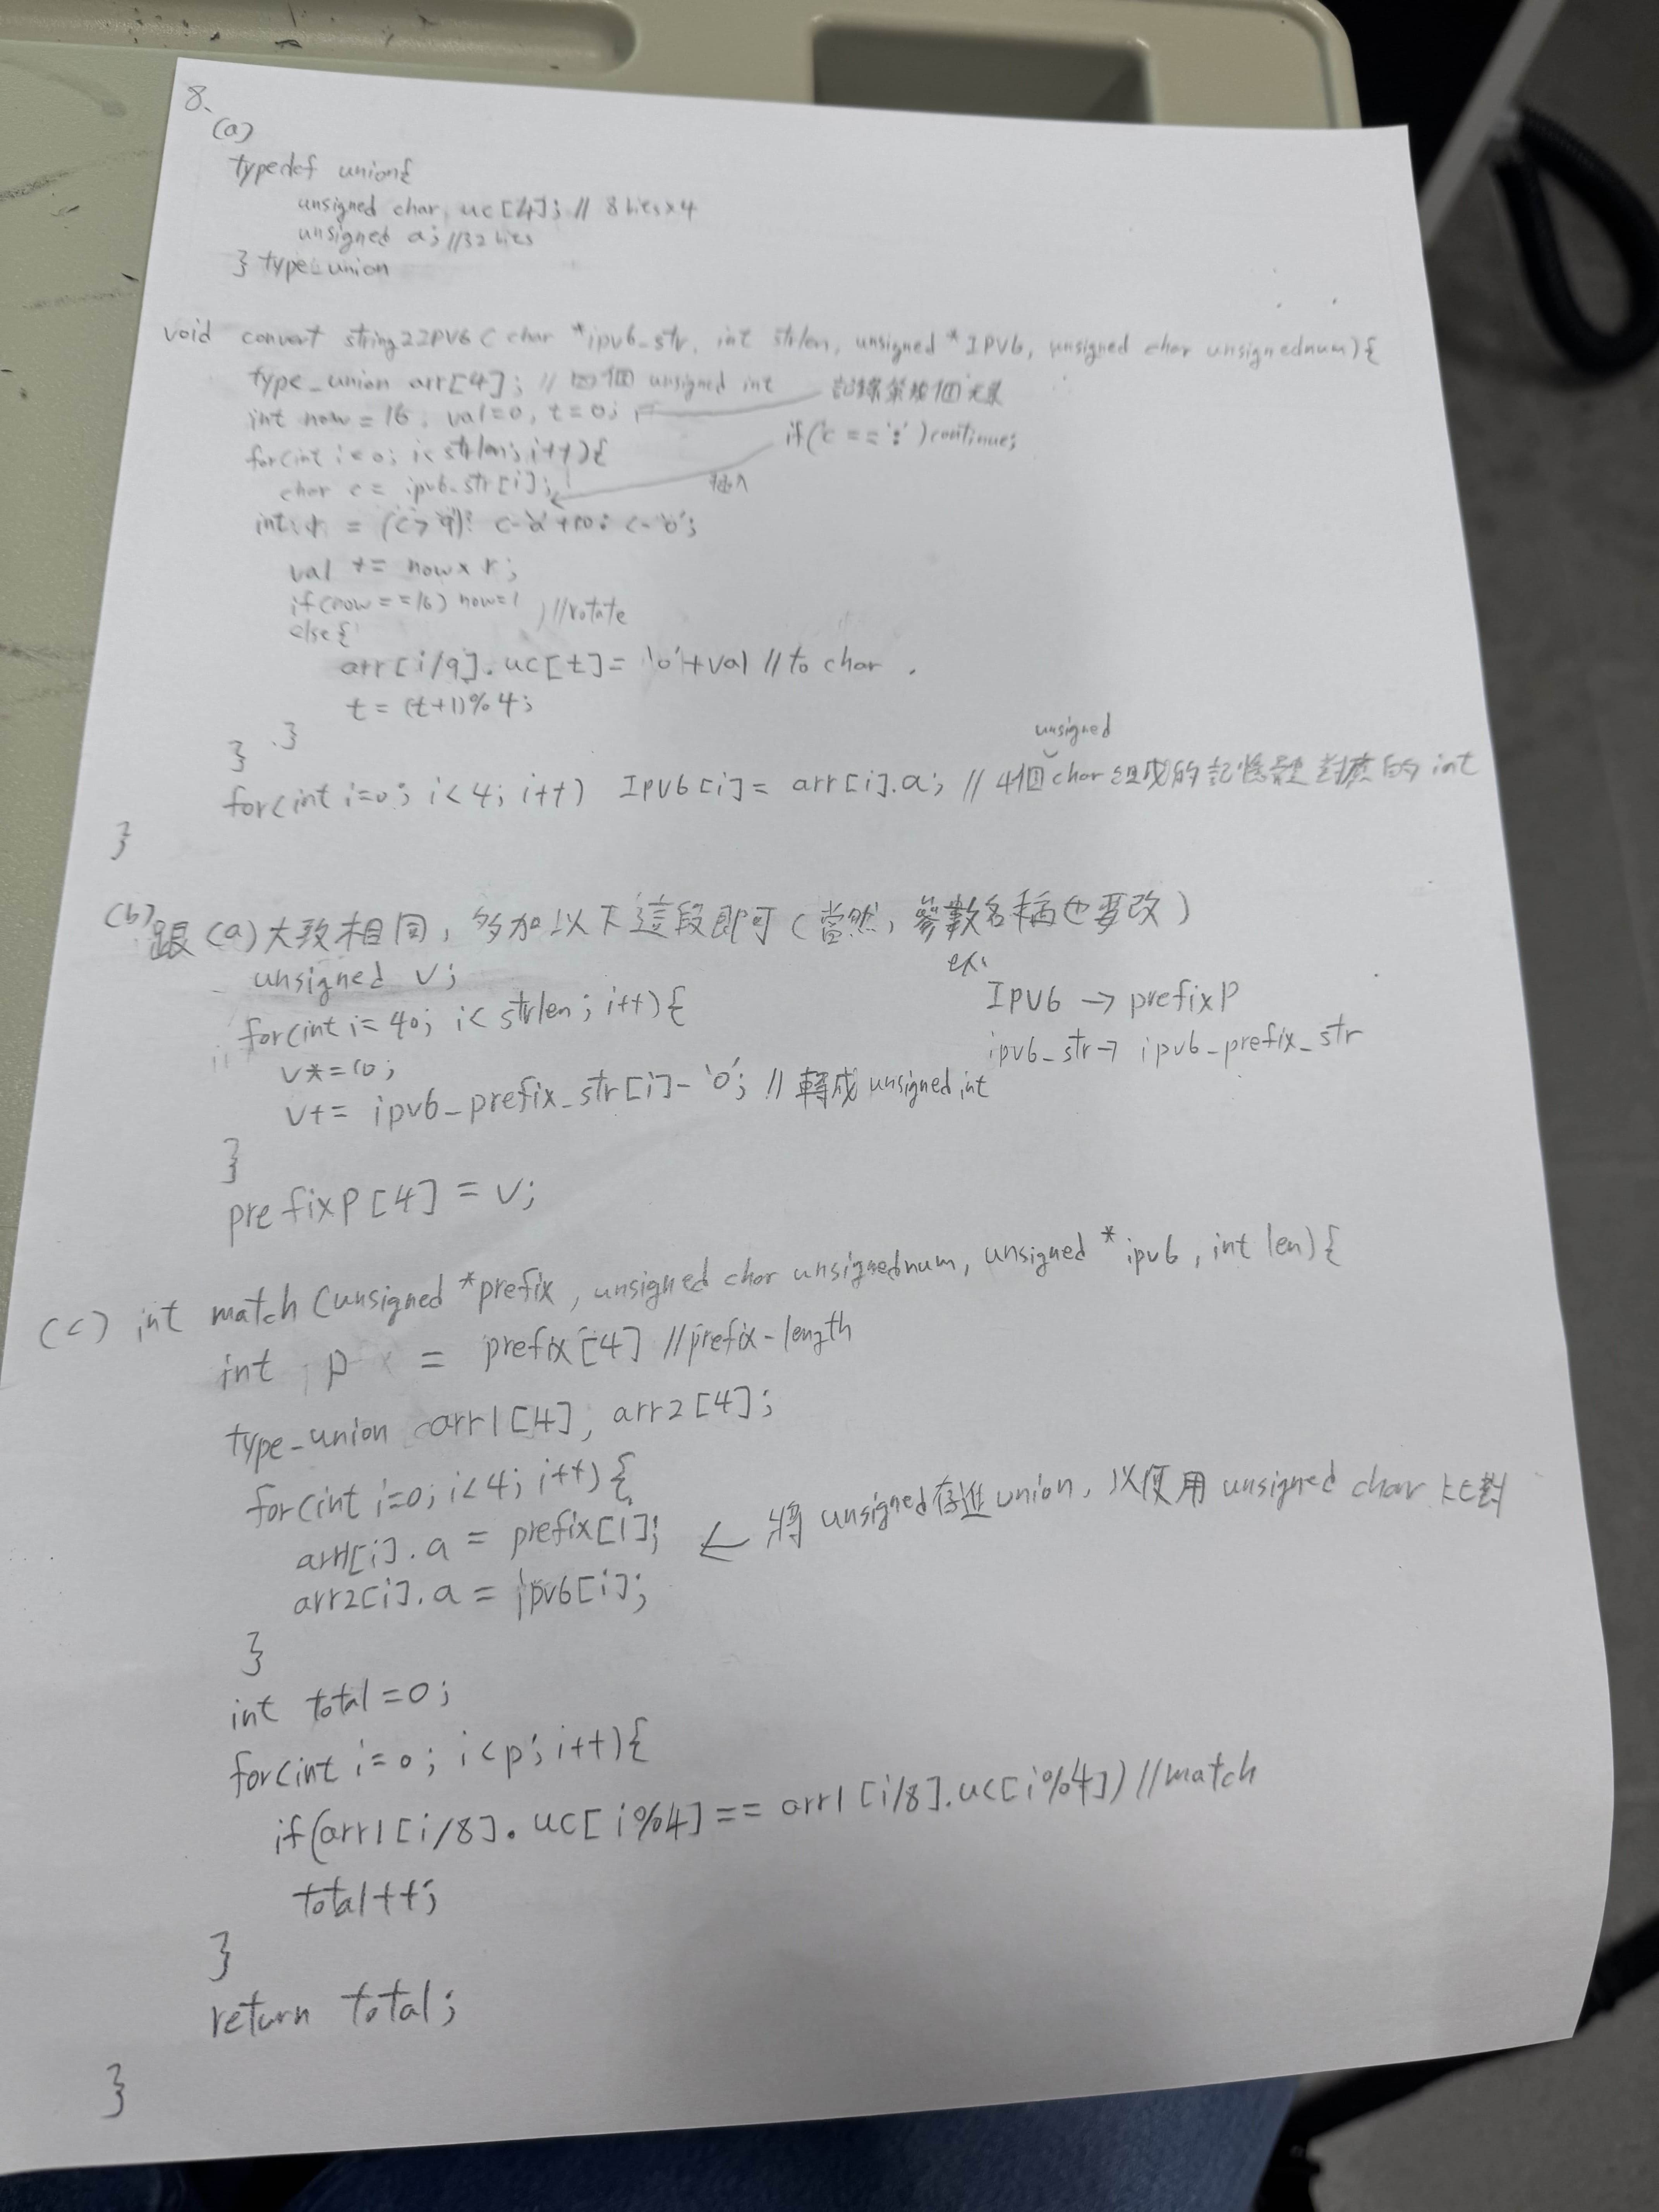 8.
(a)
typedef union{
unsigned char uc[4]; // 8 bits×4
unsigned a; //32 bits
} type_union
void convert string2IPV6 ( char *ipv6_str, int strlen, unsigned *IPV6, unsigned char unsignednum){
type_union arr[4]; // 四個 unsigned int
int now=16, val=0, t=0; 記錄第幾個元素
for(int i=0; i<strlen; i++){ if('c ==':')continue;
char c= ipv6_str[i]; 插入
int r = (c>'9')? c-'a'+10: c-'0';
val += now× r;
if(now==16) now=1 //rotate
else{
arr[i/9].uc[t]= '0'+val //to char.
t=(t+1)%4;
}
}
for(int i=0; i<4; i++) IPV6[i]= arr[i].a; // 4個 unsigned char組成的記憶體對應的int
}
(b) 跟(a)大致相同, 多加以下這段即可(當然, 參數名稱也要改)
unsigned v; ex.
for(int i=40; i<strlen; i++){ IPV6 → prefixP
v*=10; ipv6_str→ ipv6_prefix_str
v+= ipv6_prefix_str[i]-'0'; // 轉成 unsigned int
}
prefixP[4]=v;
(c) int match (unsigned *prefix, unsigned char unsignednum, unsigned *ipv6, int len){
int p = prefix[4] //prefix-length
type_union arr1[4], arr2[4];
for(int i=0; i<4; i++){
arr1[i].a = prefix[i]; ← 將 unsigned存進union, 以使用 unsigned char 比對
arr2[i].a = ipv6[i];
}
int total=0;
for(int i=0; i<p; i++){
if(arr1[i/8].uc[i%4]== arr1[i/8].uc[i%4]) //match
total++;
}
return total;
}